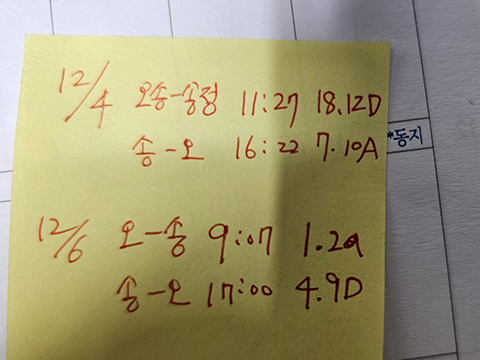 12/4 오송-송정 11:27 18.12D
송-오 16:22 7.10A
*동지
12/6 오-송 9:07 1.2a
송-오 17:00 4.9D